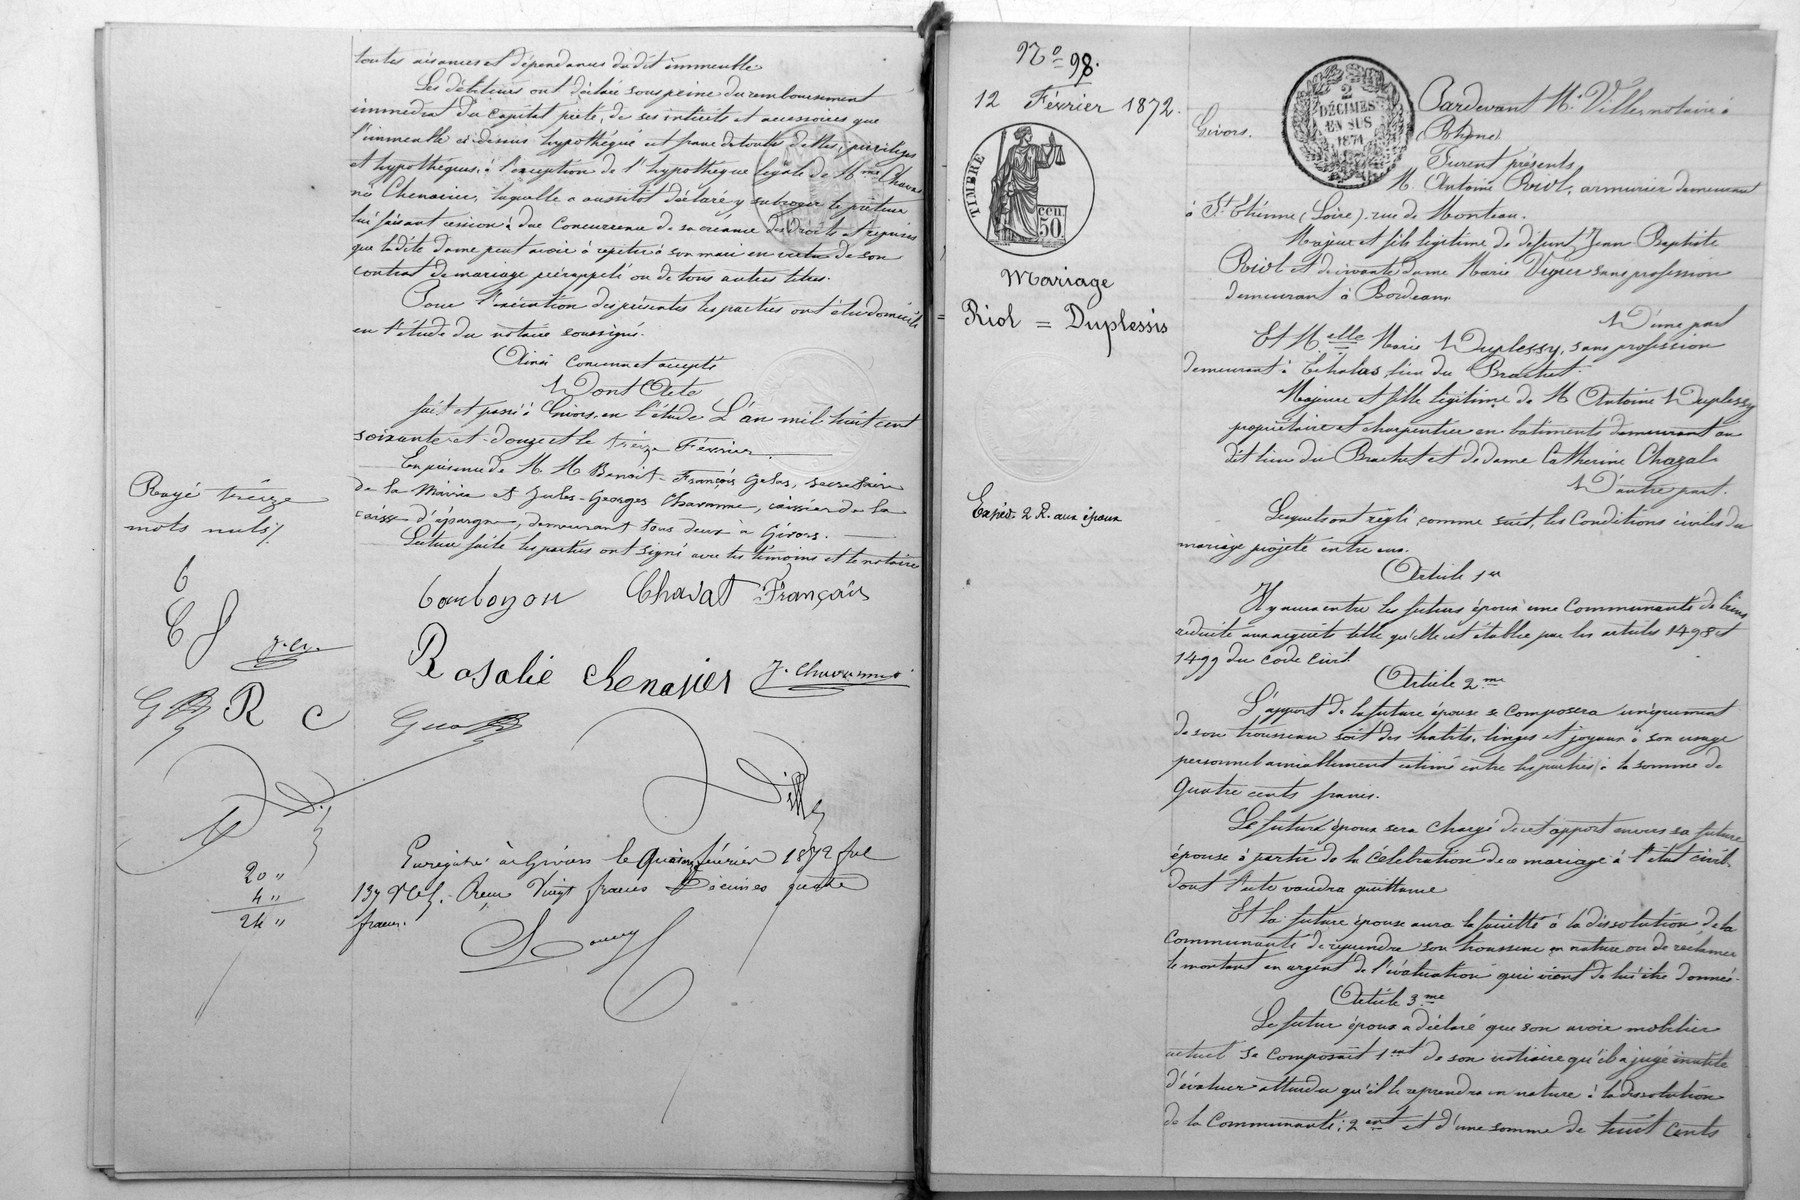 toutes aisances et dépendances dudit immeuble
Les débiteurs ont déclaré sous peine du remboursement
immédiat du capital prêté, de ses intérêts et accessoires que
l'immeuble ci dessus hypothéqué est franc de toutes dettes, privilèges
et hypothèques, à l'exception de l'hypothèque légale de Mme Chavat
née Chenavier, laquelle a aussitôt déclaré y subroger le prêteur
lui faisant cession à due concurrence de sa créance des droits et reprises
que la dite dame peut avoir à répéter à son mari en vertu de son
contrat de mariage prérappelé ou de tous autres titres.
Pour l'exécution des présentes les parties ont élu domicile
en l'étude du notaire soussigné.
Ainsi convenu et accepté
Dont Acte
fait et passé à Givors, en l'étude L'an mil huit cent
soixante-et-douze et le treize Février.
En présence de M. M. Benoit-François Gelas, secrétaire
de la Mairie et Jules-Georges Chavanne, caissier de la
caisse d'épargne, demeurant tous deux à Givors.
Lecture faite les parties ont signé avec les témoins et le notaire
Rayé treize
mots nuls
Chavat François
Rosalie Chenavier J. Chavanne
R C
Enregistré à Givors le quinze février 1872 fol
137 Vo C. Reçu Vingt francs Décimes quatre
francs.
20 "
4 "
24 "
No 98.
12 Février 1872.
TIMBRE
cen.
50.
Mariage
Riol = Duplessis
Expéd. 2 R. aux époux
2
DÉCIMES
EN SUS
1871
Pardevant Me Ville, notaire à
Givors. (Rhône)
Furent présents
M. Antoine Riol, armurier demeurant
à St Etienne (Loire) rue de Monteau.
Majeur et fils légitime de défunt Jean Baptiste
Riol et de vivante dame Marie Vigier sans profession
demeurant à Bordeaux
D'une part
Et Melle Marie Duplessy, sans profession
demeurant à Echalas, lieu du Brachet
Majeure et fille légitime de M Antoine Duplessy
propriétaire et charpentier en batiments demeurant au
dit lieu du Brachet et de dame Catherine Chazal
D'autre part.
Lesquels ont réglé comme suit, les Conditions civiles du
mariage projeté entre eux.
Article 1er
Il y aura entre les futurs époux une Communauté de biens
réduite aux acquêts telle qu'elle est établie par les articles 1498 et
1499 du code civil
Article 2me
L'apport de la future épouse se composera uniquement
de son trousseau soit des habits, linges et joyaux à son usage
personnel amiablement estimé entre les parties à la somme de
quatre cents francs.
Le futur époux sera chargé de cet apport envers sa future
épouse à partir de la célébration de ce mariage à l'état civil
dont l'acte vaudra quittance
Et la future épouse aura la faculté à la dissolution de la
Communauté de reprendre son trousseau en nature ou de réclamer
le montant en argent de l'évaluation qui vient de lui être donnée.
Article 3me
Le futur époux a déclaré que son avoir mobilier
actuel se composait 1ent de son vestiaire qu'il a jugé inutile
d'évaluer attendu qu'il le reprendra en nature à la dissolution
de la Communauté; 2ent et d'une somme de huit cents